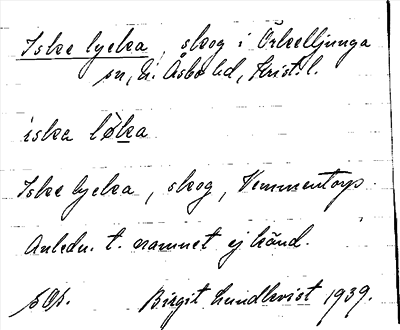 Iske lycka, skog i Örkelljunga
sn, N. Åsbo hd, Krist. l.
iska lỏka
Iske lycka, skog, Vemmentorp.
Anledn. t. namnet ej känd.
sOs. Birgit Lundkvist 1939.